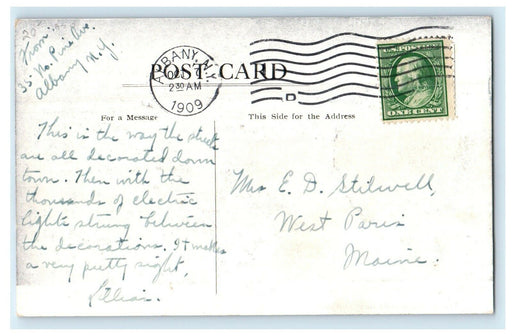 From
35 No. Pine Ave.
Albany N.Y.
ALBANY, N.Y.
2 30 AM
1909
POST CARD
D
U.S. POSTAGE
ONE CENT
For a Message
This Side for the Address
This is the way the streets
are all decorated down
town. Then with the
thousands of electric
lights strung between
the decorations. It makes
a very pretty sight.
Mrs E. D. Stilwell,
West Paris
Maine.